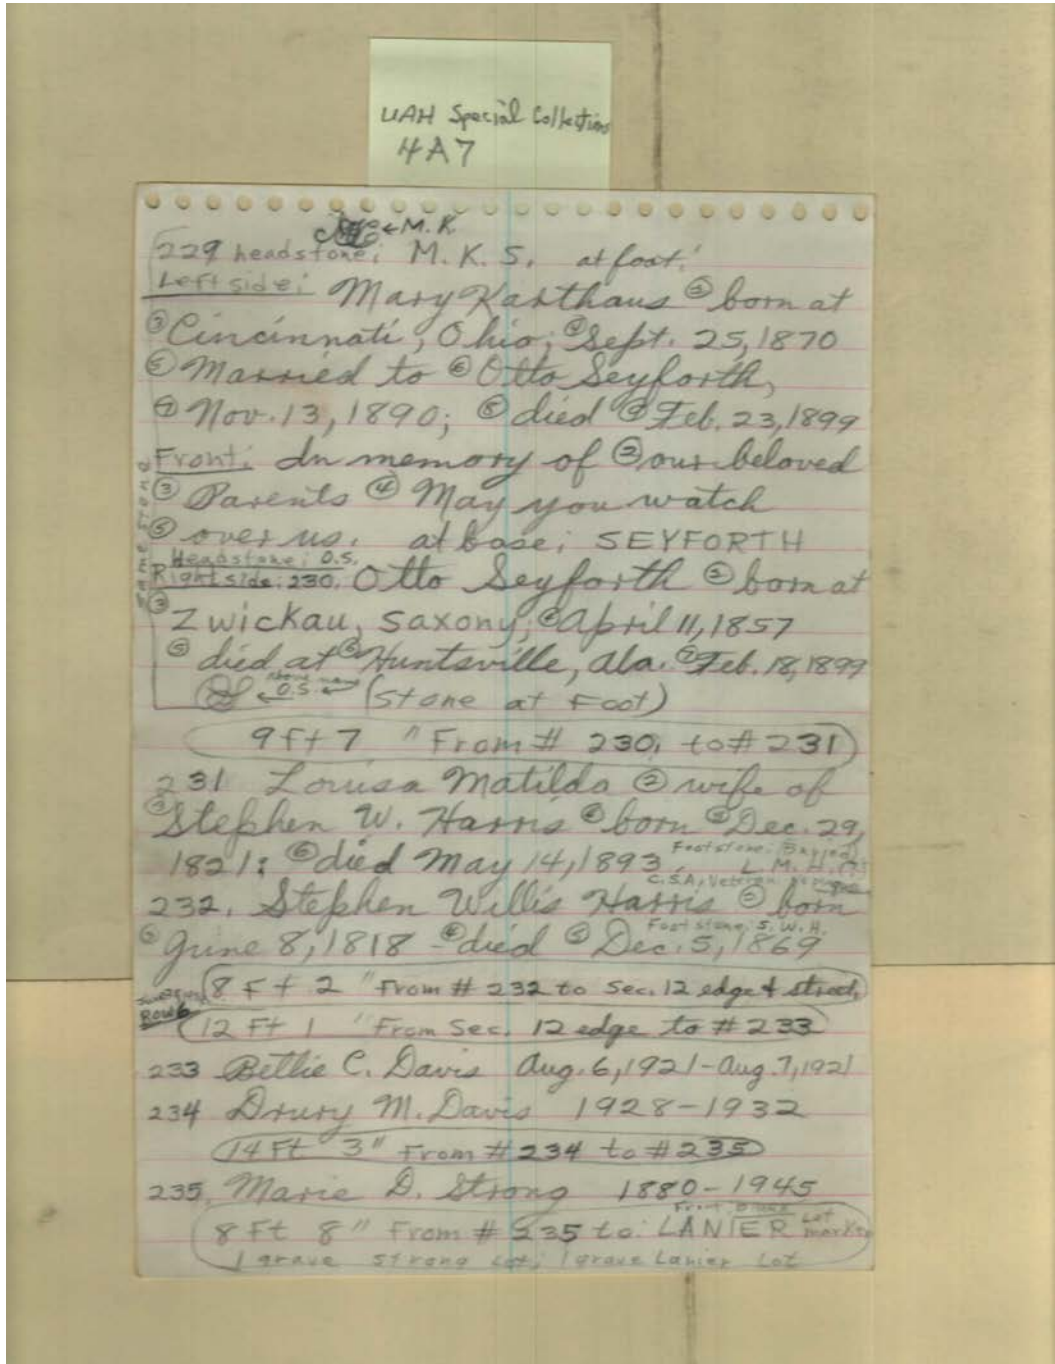 UAH Special Collections
4A7
← M.K.
229 headstone; M. K. S. at foot;
Left side; Mary Karthaus ② born at
③ Cincinnati, Ohio; ④ Sept. 25, 1870
⑤ Married to ⑥ Otto Seyforth,
⑦ Nov. 13, 1890; ⑧ died ⑨ Feb. 23, 1899
Front; In memory of ② our beloved
③ Parents ④ May you watch
⑤ over us. at base; SEYFORTH
same stone
Headstone; O.S.
Right side; 230. Otto Seyforth ② born at
③ Zwickau, Saxony; ④ April 11, 1857
⑤ died at ⑥ Huntsville, Ala. ⑦ Feb. 18, 1899
above name
← O.S. (stone at Foot)
9 ft 7 " From # 230, to # 231
231 Louisa Matilda ② wife of
③ Stephen W. Harris ④ born ⑤ Dec. 29,
1821; ⑥ died May 14, 1893
Footstone; Buried
L. M. H.
C.S.A. Veteran
232. Stephen Willis Harris ② born
Footstone; S. W. H.
③ June 8, 1818 - ④ died ⑤ Dec. 5, 1869
8 Ft 2 " From # 232 to Sec. 12 edge & street,
Row 6
12 Ft 1 " From Sec. 12 edge to # 233
233 Bettie C. Davis Aug. 6, 1921 - Aug. 7, 1921
234 Drury M. Davis 1928 - 1932
14 Ft 3" From # 234 to # 235
235. Marie D. Strong 1880 - 1945
8 Ft 8" From # 235 to: LANIER Lot marker
1 grave strong Lot; 1 grave Lanier Lot